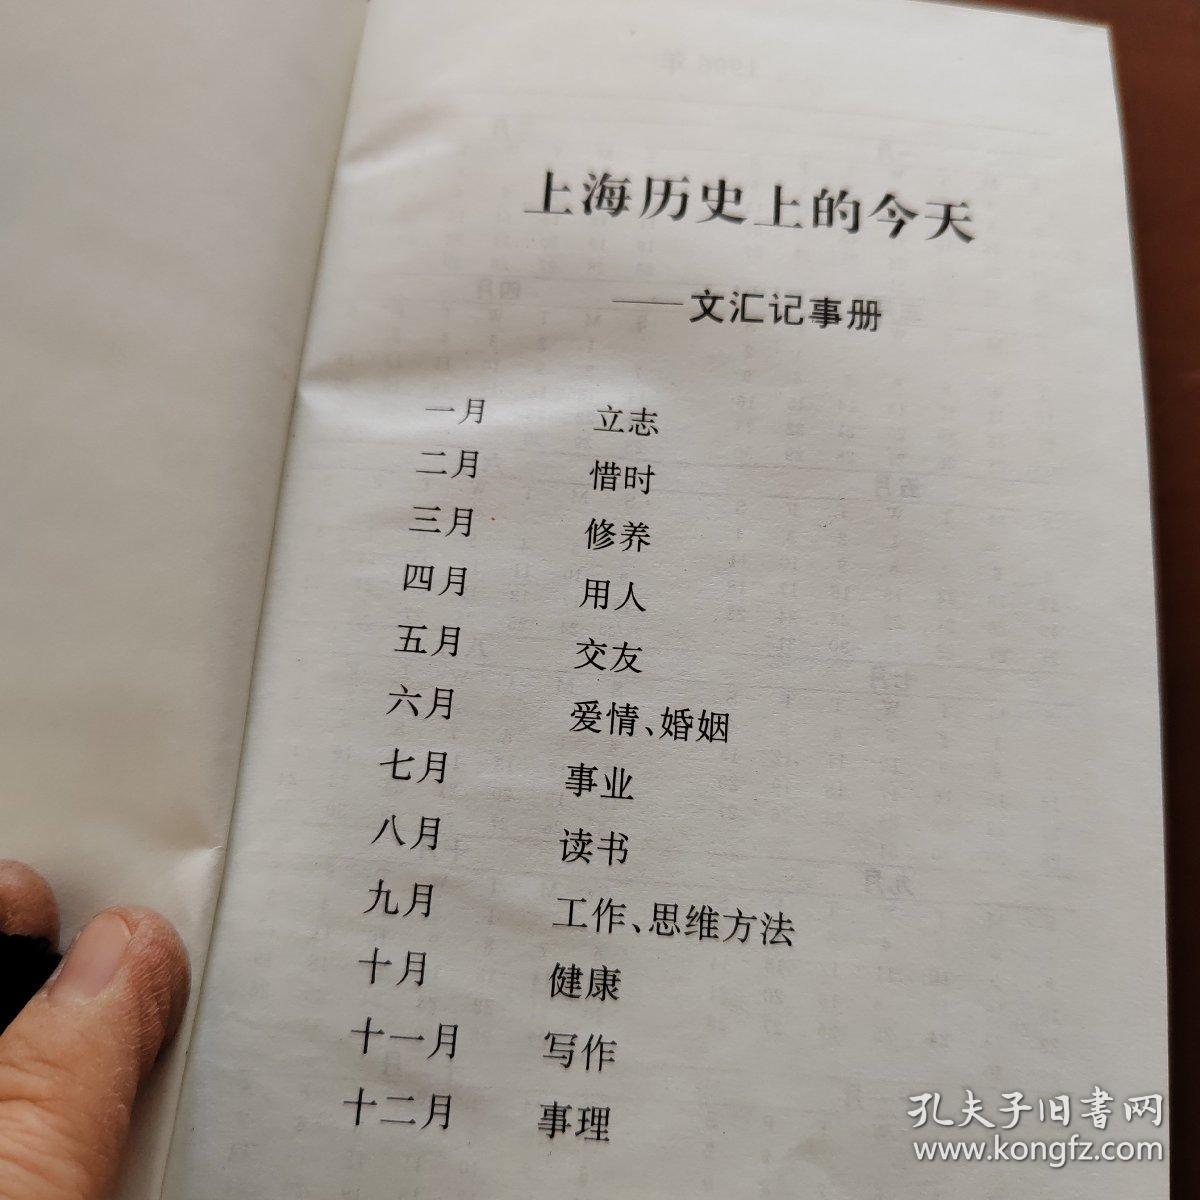 上海历史上的今天
——文汇记事册
一月 立志
二月 惜时
三月 修养
四月 用人
五月 交友
六月 爱情、婚姻
七月 事业
八月 读书
九月 工作、思维方法
十月 健康
十一月 写作
十二月 事理
孔夫子旧书网
www.kongfz.com